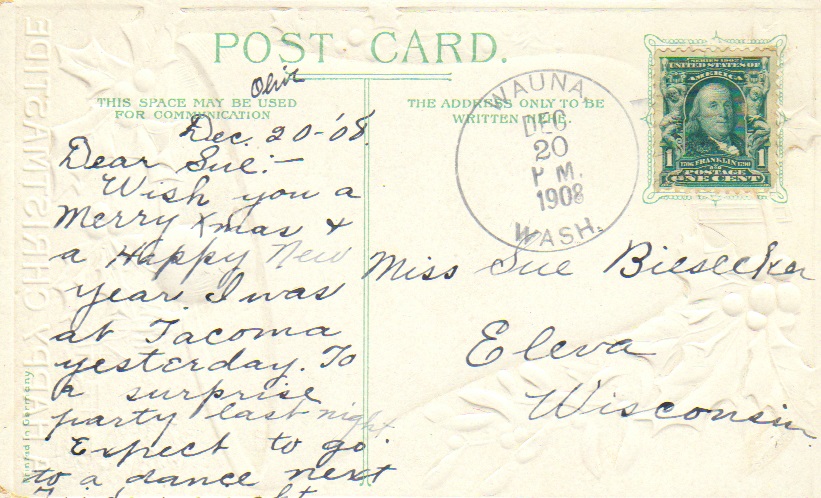 POST CARD.
Olive
THIS SPACE MAY BE USED
FOR COMMUNICATION
Dec. 20-'08.
Dear Sue:—
Wish you a
Merry Xmas &
a Happy New
Year. I was
at Tacoma
yesterday. To
a surprise
party last night
Expect to go
to a dance next
THE ADDRESS ONLY TO BE
WRITTEN HERE.
WAUNA,
DEC
20
P M.
1908
WASH.
SERIES 1902
UNITED STATES OF
AMERICA
1 1706 FRANKLIN 1790 1
POSTAGE
ONE CENT
Miss Sue Biesecker
Eleva
Wisconsin
Printed in Germany
A HAPPY CHRISTMASTIDE